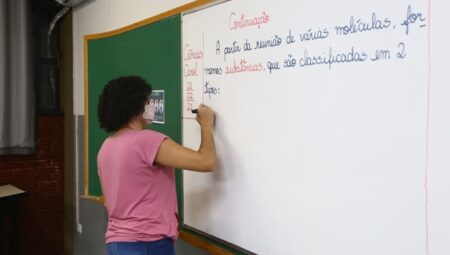 Continuação
A partir da reunião de várias moléculas, for-
mamos substâncias, que são classificadas em 2
tipos:
Ciências
Canal